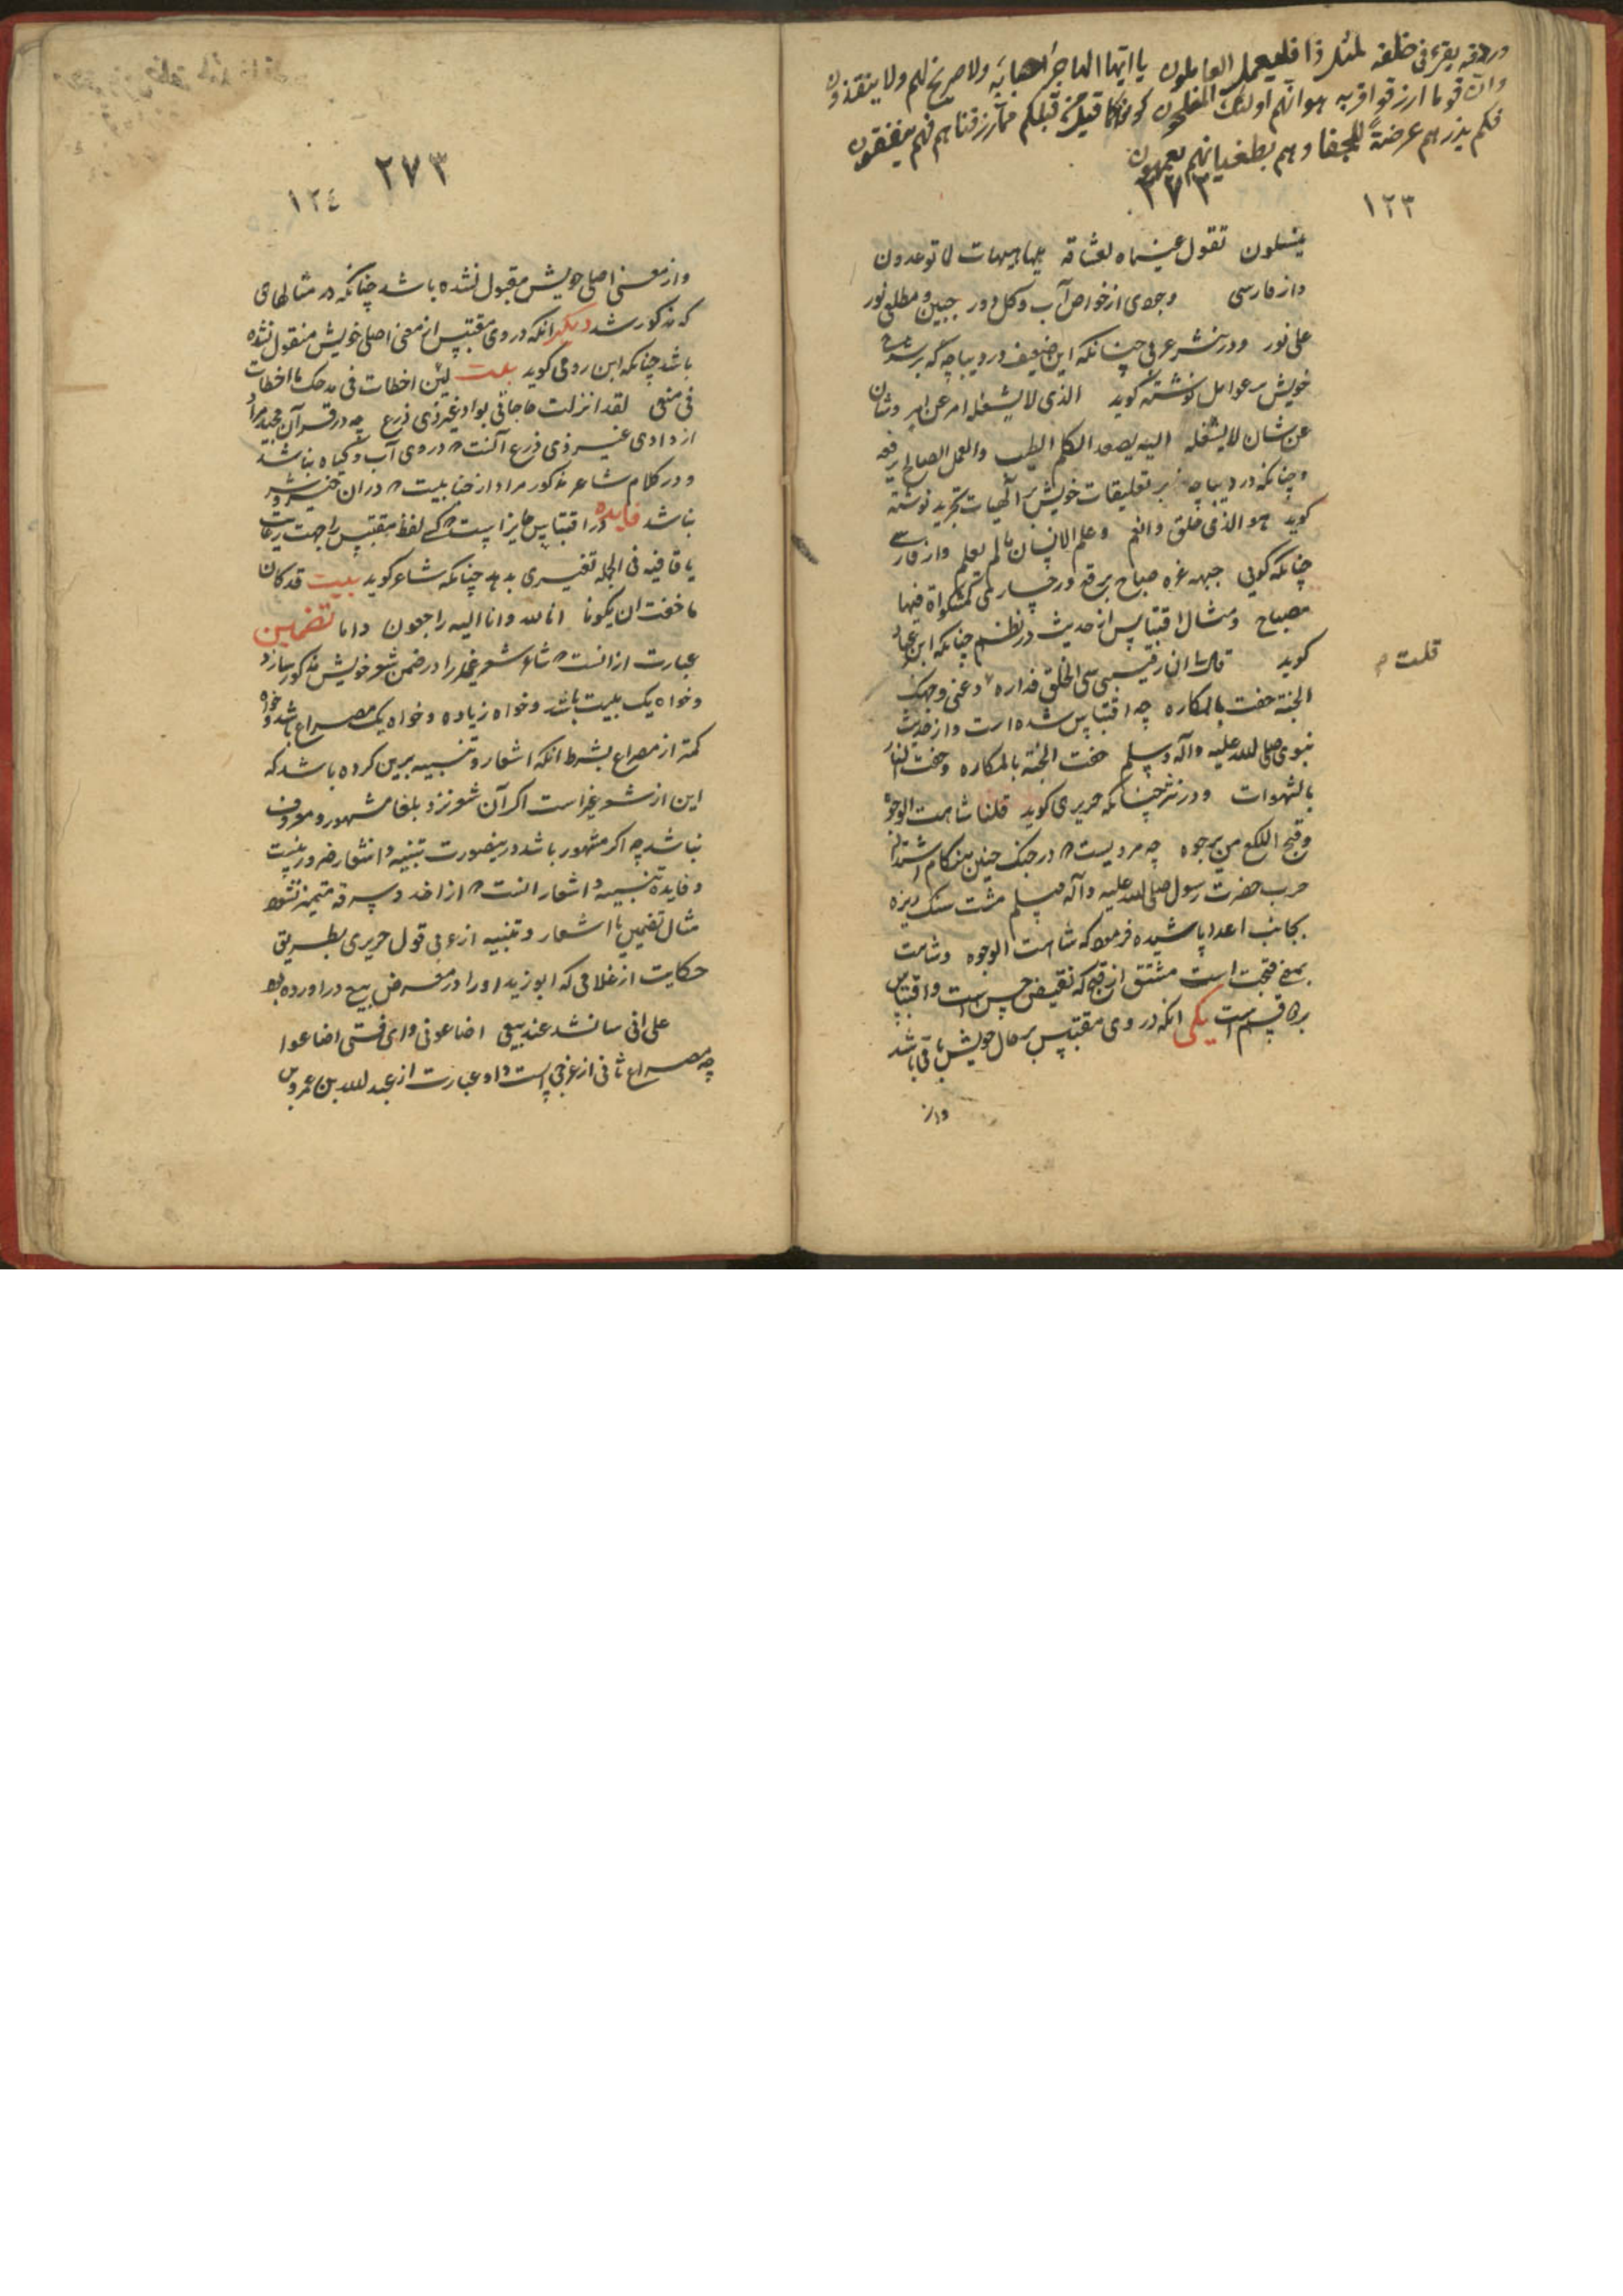 وردفه يقرء فی خلفه لمثل ذا فليعمل العاملون يا ايها الهاجر اصحابه ولا صريخ لهم ولا ينقذون
وان قوما ارزقوا قربه هو انهم اولئك المفلحون
فكم يذرهم عرضة للجفا وهم بطغيانهم يعمهون مما رزقناهم فهم ينفقون
١٢٣
٢٧٣
ينسلون تقول عيناه لعشاقه هيهات هيهات لا توعدون
و از فارسی وجودی از خواص آب و کل دور جبین و مطلع نور
علی نور و در نثر عربی چنانکه این ضعیف در دیباچه که بر شرح
خویش بر عوامل نوشته گوید الذی لا یشغله امر عن امر و شان
عن شان لا یشغله الیه یصعد الکلم الطیب والعمل الصالح یرفعه
و چنانکه در دیباچه بر تعلیقات خویش بر الهیات تجرید نوشته
گوید هو الذی خلق و انعم و علم الانسان ما لم یعلم و از فارسی
چنانکه کوئی جبهه غره صباح برقع در چهار کمشکواة فیها
مصباح و مثال اقتباس از حدیث در نظم چنانکه ابن عباد
کوید قال لی ان رقیبی سی الخلق فداره دعنی وجهک
قلت م
الجنة حفت بالمکاره چه اقتباس شده است و از حدیث
نبوی صلی الله علیه و آله و سلم حفت الجنة بالمکاره و حفت النار
بالشهوات و در نثر چنانکه حریری کوید قلنا شاهت الوجوه
و قبح اللکع و من یرجوه چه مرویست که در جنک حنین هنکام اشتداد
حرب حضرت رسول صلی الله علیه و آله و سلم مشت سنک ریزه
بجانب اعدا پاشیده فرمود که شاهت الوجوه و شاهت
بمعنی قبحت است مشتق از قبح که نقیض حسن است و اقتباس
بر دو قسم است یکی انکه در وی مقتبس بر حال خویش باقی باشد
و از
٢٧٣
١٢٤
و از معنی اصلی خویش مقبول نشده باشد چنانکه در مثالهای
که مذکور شد دیکر انکه در وی مقتبس از معنی اصلی خویش منقول شده
باشد چنانکه ابن رومی گوید بیت لئن اخطات فی مدحک ما اخطات
فی منعی لقد انزلت حاجاتی بواد غیر ذی زرع چه در قرآن مجید مراد
از وادی غیر ذی زرع آنست که در وی آب و کیاه نباشد
و در کلام شاعر مذکور مراد از جنابیست که در ان خیر و شر
نباشد فایده در اقتباس جایز است که لفظ مقتبس را جهت رعایت
یا قافیه فی الجمله تغییری بدهد چنانکه شاعر کوید بیت قد کان
ما خفت ان یکونا انا لله و انا الیه راجعون و اما تضمین
عبارت از انست که شاعر شعر غیر را در ضمن شعر خویش مذکور سازد
و خواه یک بیت باشد و خواه زیاده و خواه یک مصراع باشد و خواه
کمتر از مصراع بشرط انکه اشعار و تنبیه برین کرده باشد که
این از شعر غیر است اکر آن شعر نزد بلغا مشهور و معروف
نباشد چه اکر مشهور باشد درینصورت تنبیه و اشعار ضرور نیست
و فایده تنبیه و اشعار انست که از اخذ و سرقه متمیز شود
مثال تضمین با اشعار و تنبیه از عربی قول حریری بطریق
حکایت از غلامی که ابو زید او را در معرض بیع در اورده بود
علی انی سانشد عند بیعی اضاعونی وای فتی اضاعوا
چه مصراع ثانی از عرجی است و او عبارت از عبد الله بن عمرو بن